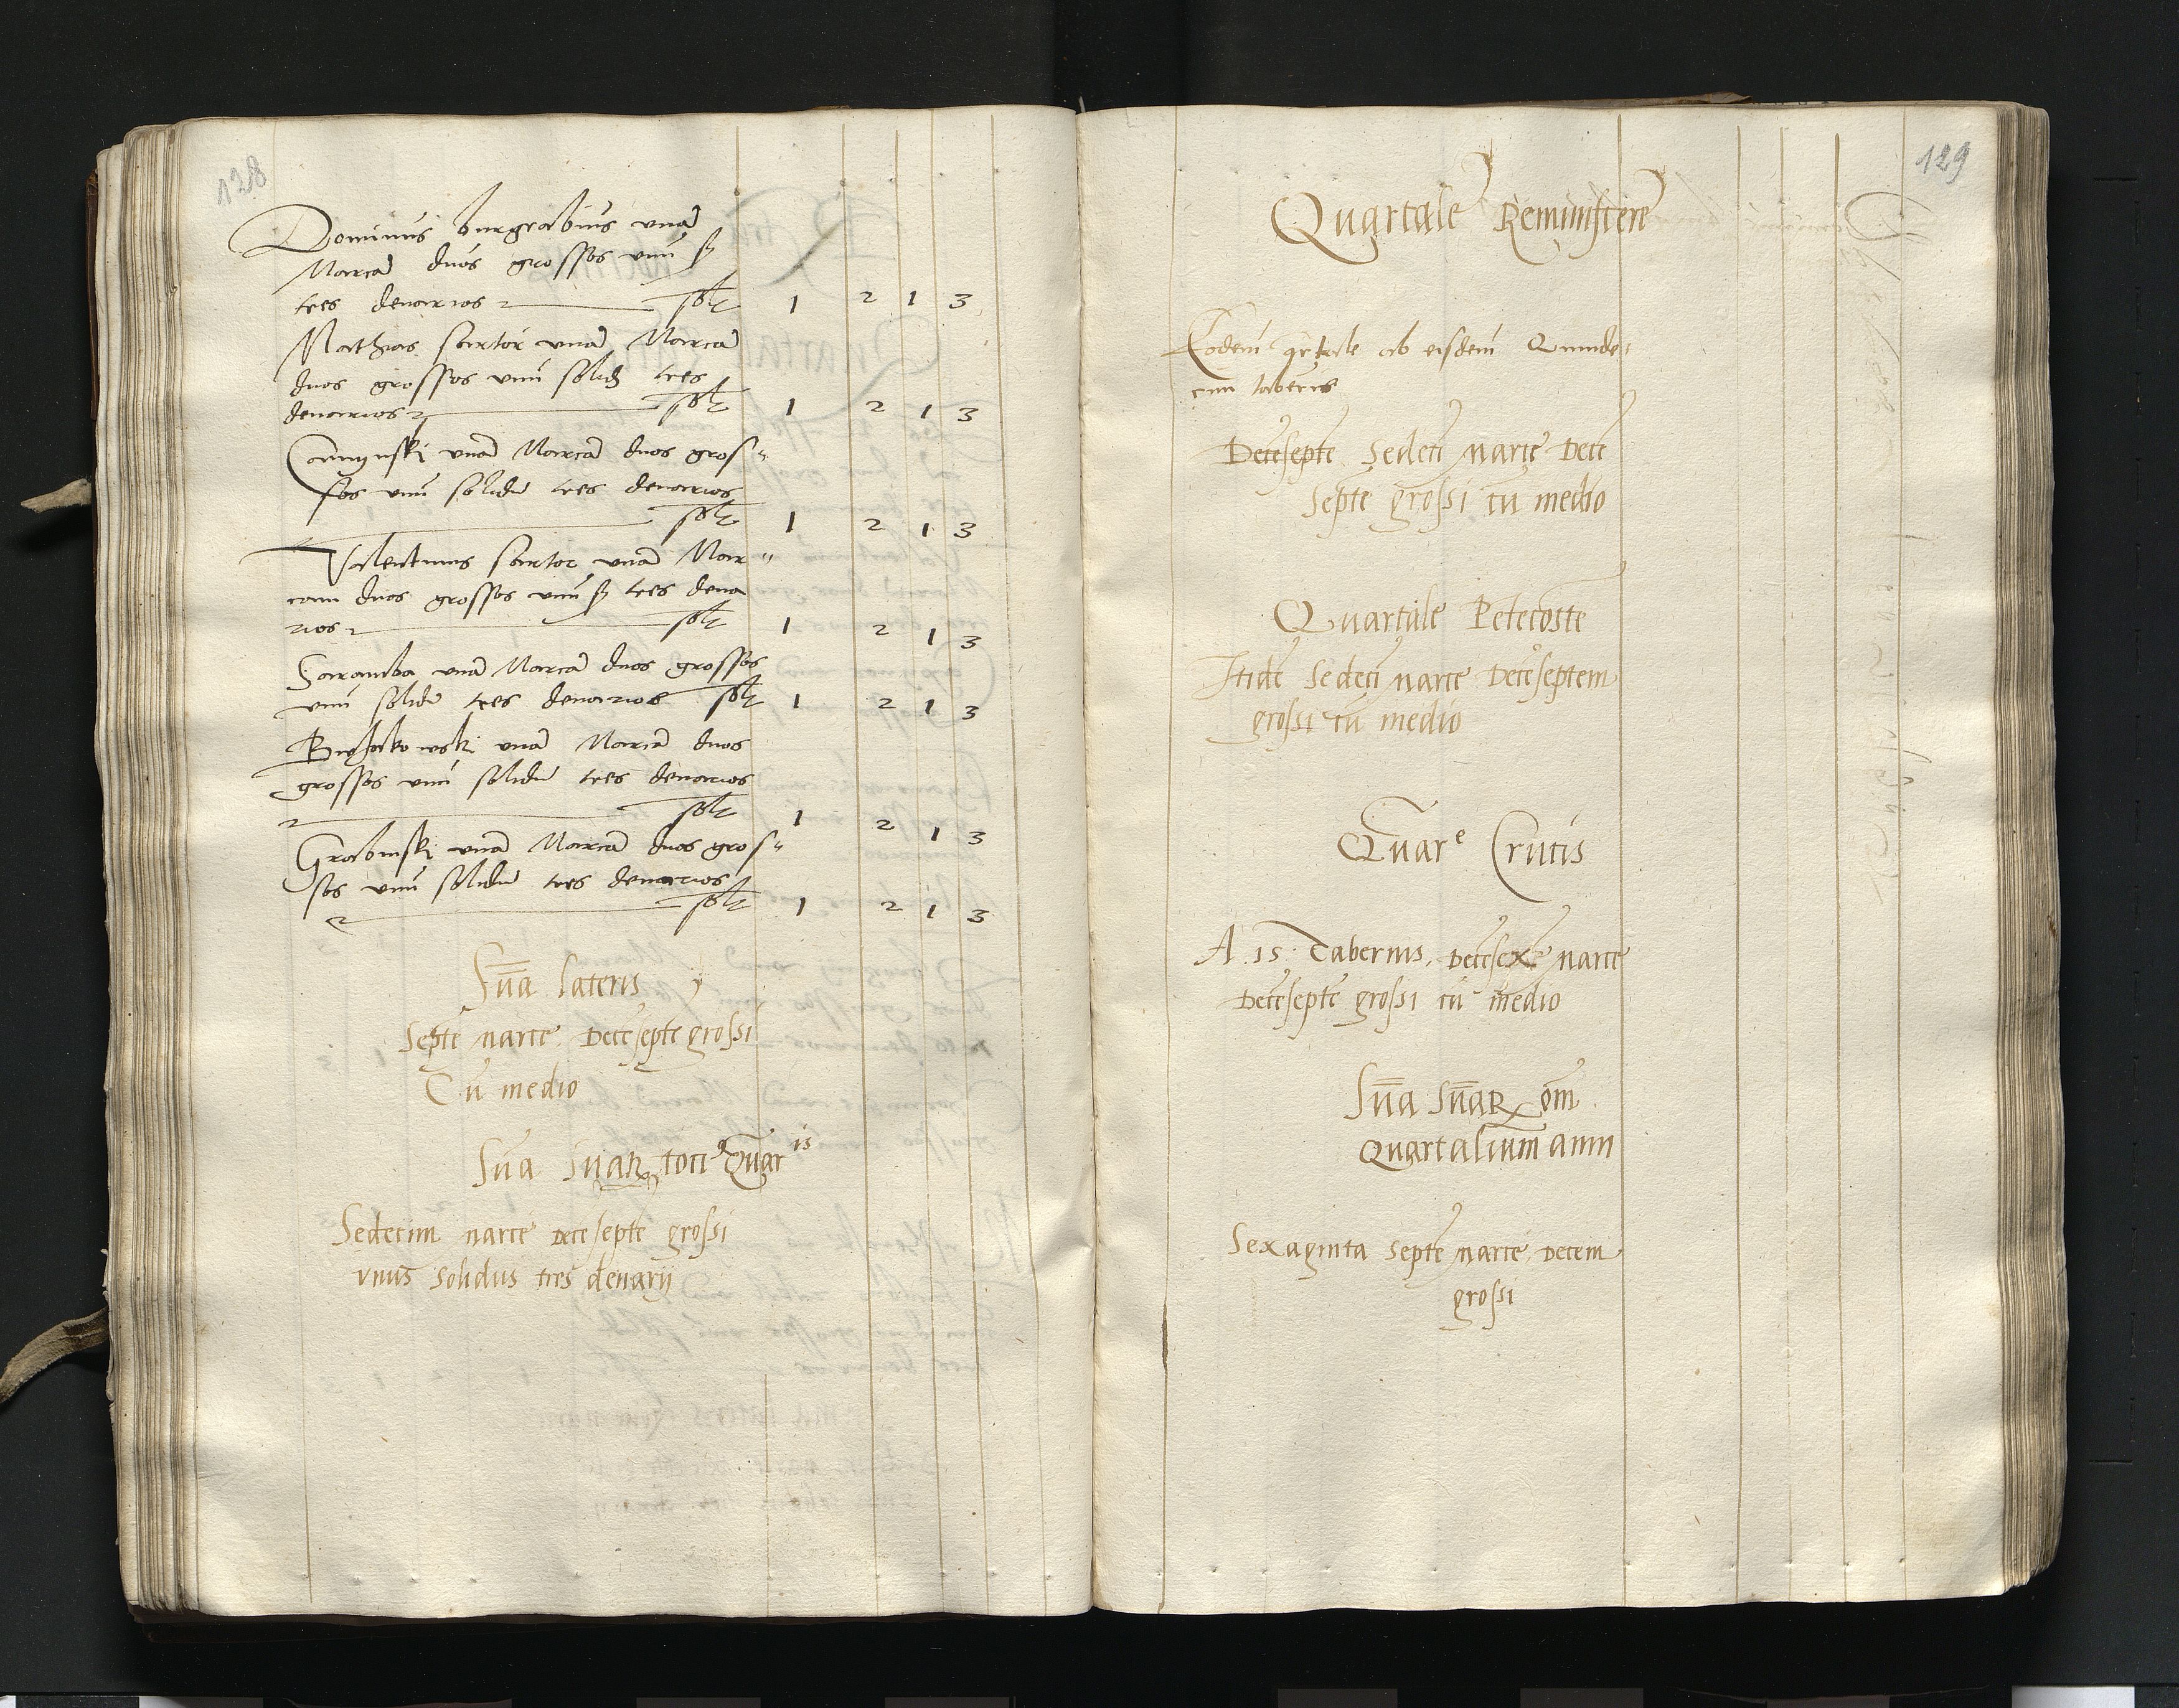 128
Dominus burgrabius vnā
Marcā duos grossos vnū sß
tres denarios solt 1 2 1 3
Mathias sartor vnā Marcā
duos grossos vnū solid tres
denarios solt 1 2 1 3
vnā Marcā duos gros-
sos vnū solidū tres denarios
solt 1 2 1 3
Valentinus sartor vnā Mar-
cam duos grossos vnū sß tres dena
rios solt 1 2 1 3
Saramba vnā Marcā duos grossos
vnū solidū tres denarios solt 1 2 1 3
vnā Marcā duos
grossos vnū solidū tres denarios
solt 1 2 1 3
Grabinski vnā Marcā duos gros-
sos vnū solidū tres denarios
solt 1 2 1 3
Sūa lateris
Septē marce Decēseptē grossi
Cū medio
Sūa sūaꝝ toti9 Quaris
Sedecim marce decēseptē grossi
vnus solidus tres denarij
129
Quartale Reminiscere
Eodem qrtale ab eisdem Quinde-
cim tabernis
Decēseptē Sedecī marce Decē
septē grossi cū medio
Quartale Pētecoste
Itidē Sedecī marce Decēseptem
grossi cū medio
Quare Crucis
A 15 Tabernis, decēsexē marce
Decēseptē grossi cū medio
Sūa sūaꝝ om̄
Quartalium anni
Sexaginta septē marce, decem
grossi